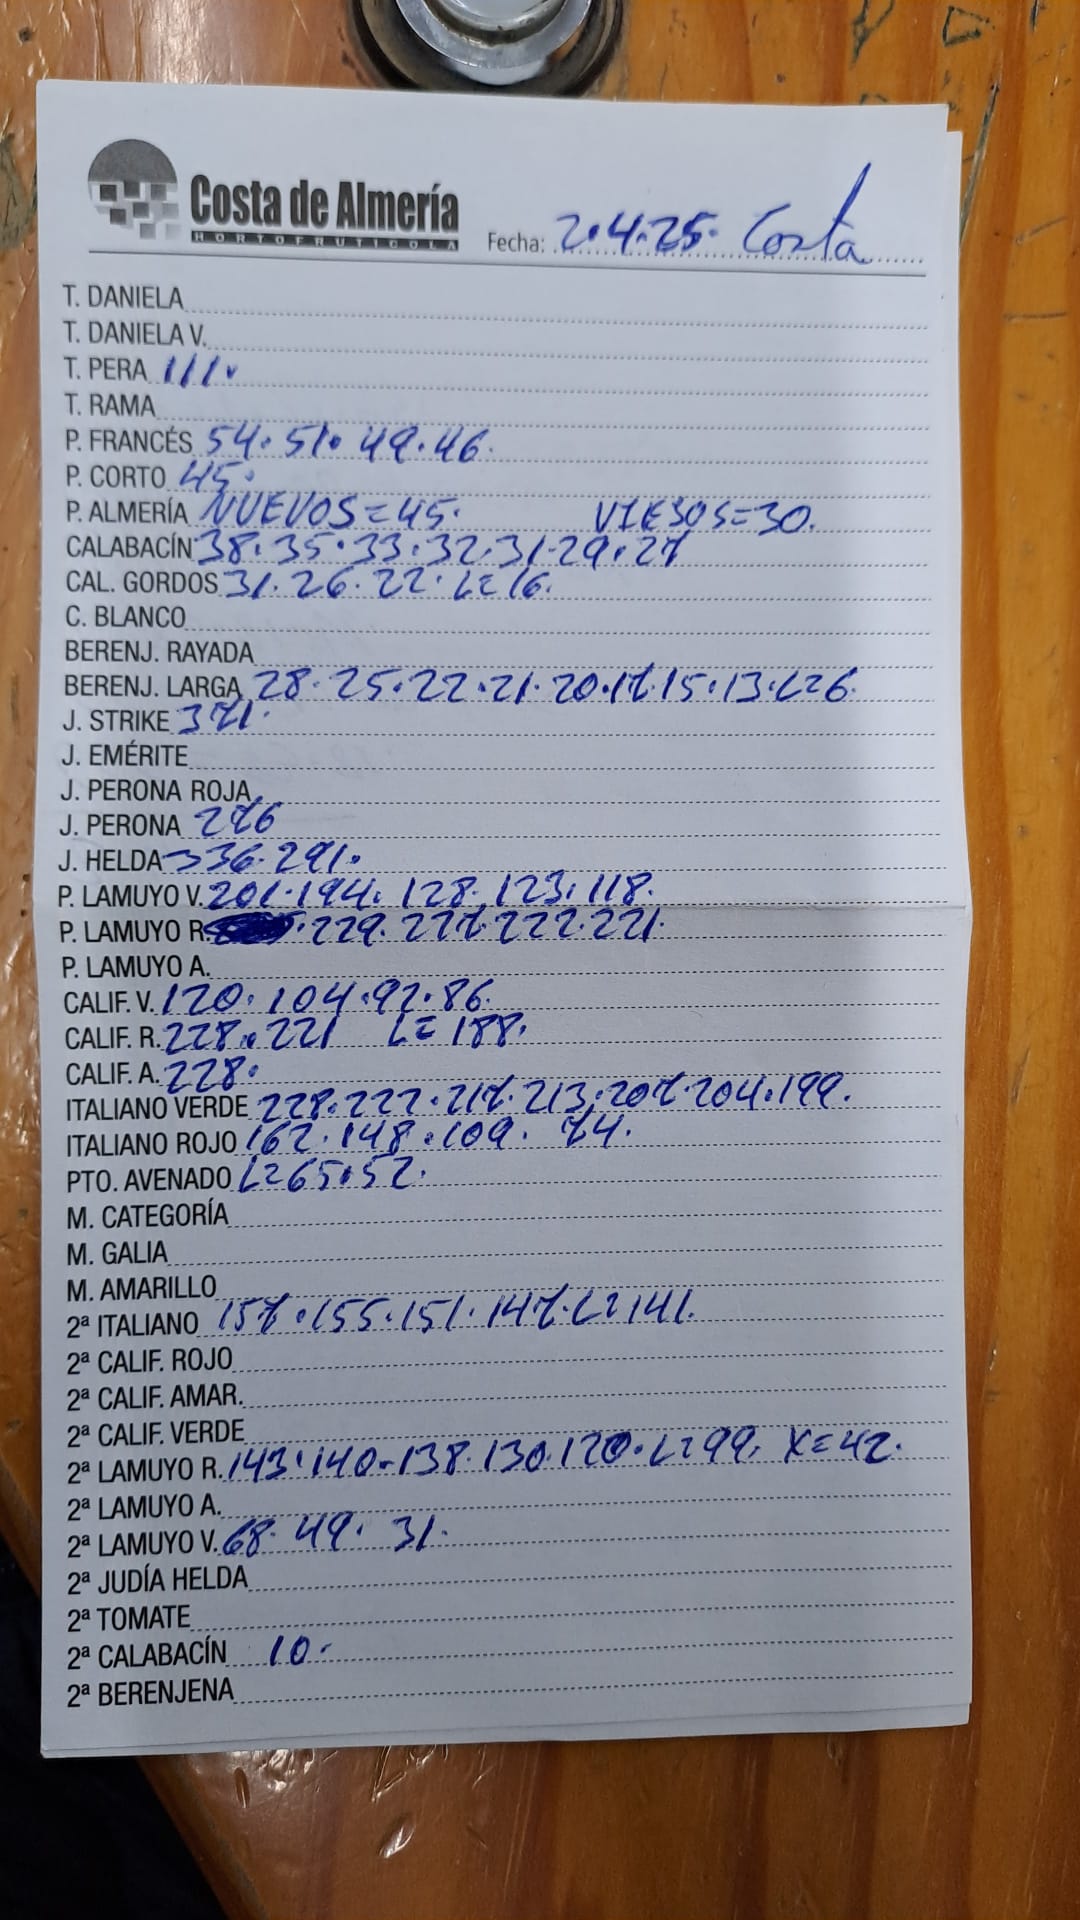 Costa de Almería
HORTOFRUTICOLA
Fecha: 2.4.25. Costa
T. DANIELA
T. DANIELA V.
T. PERA 111.
T. RAMA
P. FRANCÉS 54. 51. 49. 46.
P. CORTO 45.
P. ALMERÍA NUEVOS=45. VIEJOS=30.
CALABACÍN 38. 35. 33. 32. 31-29. 27
CAL. GORDOS 31. 26. 22. L=16.
C. BLANCO
BERENJ. RAYADA
BERENJ. LARGA 28. 25. 22. 21. 20. 17. 15. 13. L=6.
J. STRIKE 371.
J. EMÉRITE
J. PERONA ROJA
J. PERONA 276
J. HELDA 336. 291.
P. LAMUYO V. 201. 194. 128. 123. 118.
P. LAMUYO R. 229. 227. 222. 221.
P. LAMUYO A.
CALIF. V. 120. 104. 92. 86.
CALIF. R. 228. 221 L=188.
CALIF. A. 228.
ITALIANO VERDE 228. 222. 217. 213. 207. 204. 199.
ITALIANO ROJO 162. 148. 109. 74.
PTO. AVENADO L=65. 52.
M. CATEGORÍA
M. GALIA
M. AMARILLO
2ª ITALIANO 157. 155. 151. 147. L=141.
2ª CALIF. ROJO
2ª CALIF. AMAR.
2ª CALIF. VERDE
2ª LAMUYO R. 143. 140. 138. 130. 120. L=99. X=42.
2ª LAMUYO A.
2ª LAMUYO V. 68. 49. 31.
2ª JUDÍA HELDA
2ª TOMATE
2ª CALABACÍN 10.
2ª BERENJENA